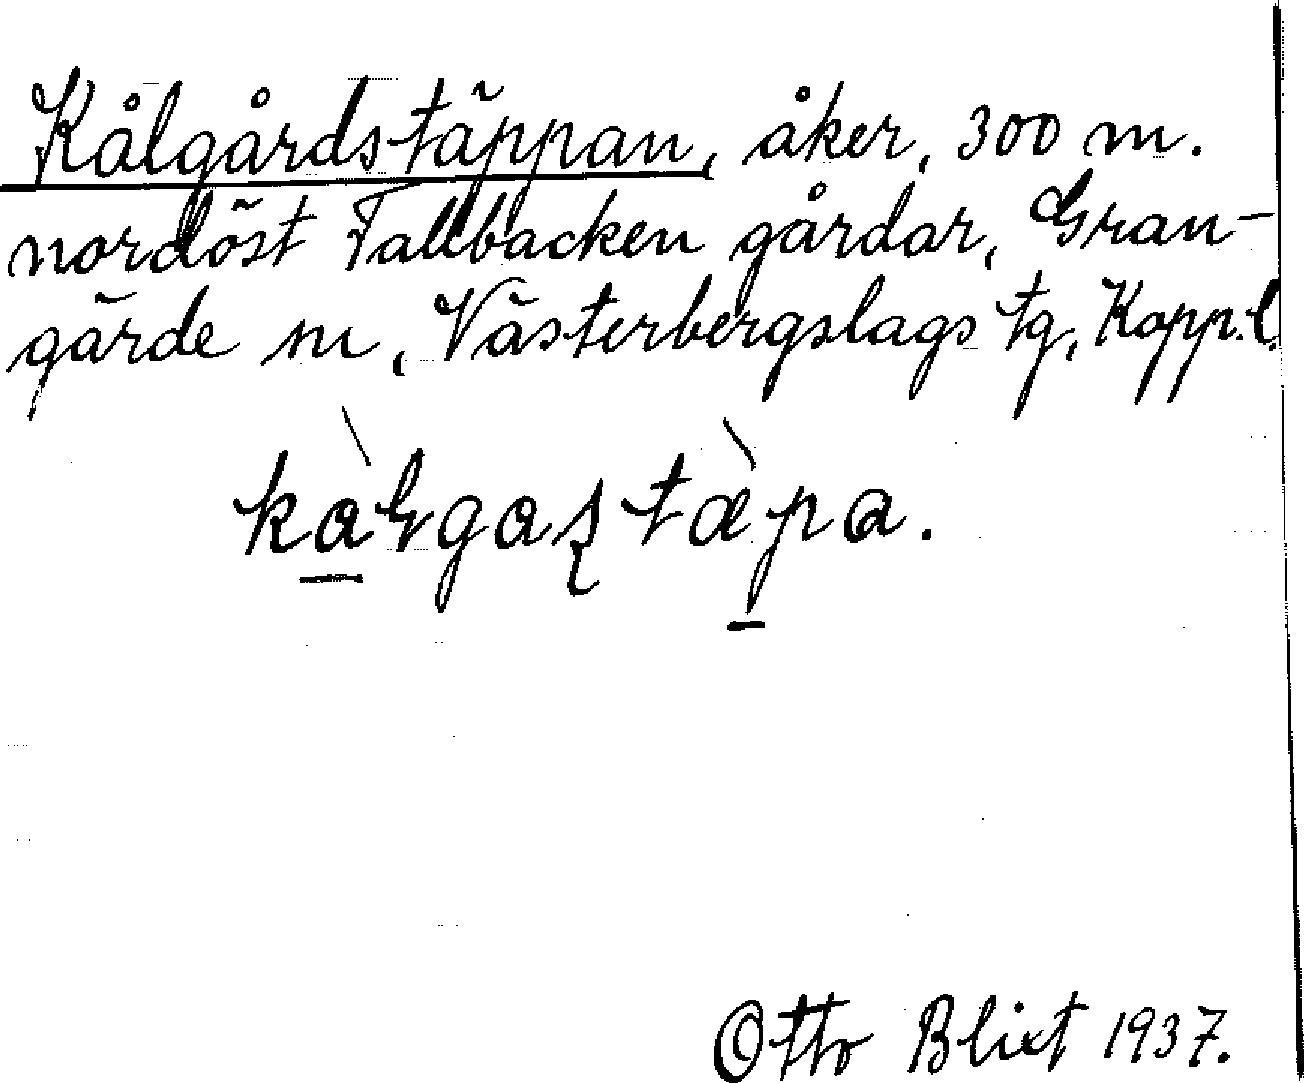 Kålgårdstäppan, åker, 300 m.
nordöst Fallbacken gårdar, Gran-
gärde sn, Västerbergslags tg, Kopp.l.
kàɽgaʂtæ̀pa.
Otto Blixt 1937.